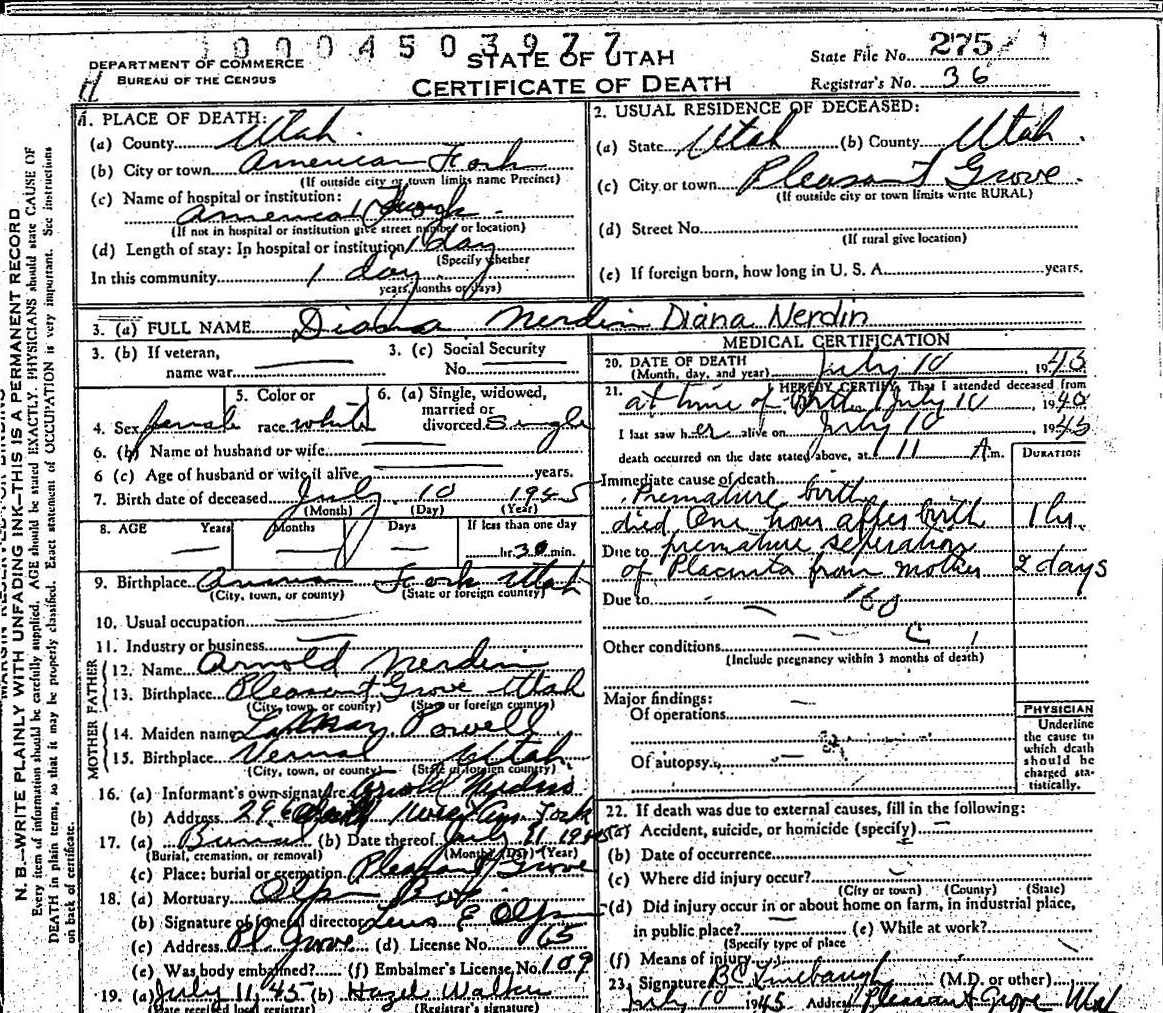 0 0 0 4 5 0 3 9 7 7
DEPARTMENT OF COMMERCE
BUREAU OF THE CENSUS
STATE OF UTAH
CERTIFICATE OF DEATH
State File No. 275
Registrar's No. 36
1. PLACE OF DEATH:
(a) County Utah
(b) City or town American Fork
(If outside city or town limits name Precinct)
(c) Name of hospital or institution:
American
(If not in hospital or institution give street number or location)
(d) Length of stay: In hospital or institution 1 day
(Specify whether
In this community 1 day
years, months or days)
2. USUAL RESIDENCE OF DECEASED:
(a) State Utah (b) County Utah
(c) City or town Pleasant Grove
(If outside city or town limits write RURAL)
(d) Street No.
(If rural give location)
(e) If foreign born, how long in U. S. A. years.
3. (a) FULL NAME Diana Nerdin Diana Nerdin
3. (b) If veteran, name war
3. (c) Social Security No.
4. Sex female
5. Color or race white
6. (a) Single, widowed, married or divorced Single
6. (b) Name of husband or wife
6 (c) Age of husband or wife if alive years.
7. Birth date of deceased July 10 1945
(Month) (Day) (Year)
8. AGE Years Months Days If less than one day
hr. 30 min.
9. Birthplace Fork Utah
(City, town, or county) (State or foreign country)
10. Usual occupation
11. Industry or business
FATHER
12. Name Arnold Nerdin
13. Birthplace Pleasant Grove Utah
(City, town, or county) (State or foreign country)
MOTHER
14. Maiden name Powell
15. Birthplace Vernal Utah
(City, town, or county) (State or foreign country)
16. (a) Informant's own signature Arnold Nerdin
(b) Address Am Fork
17. (a) Burial (b) Date thereof July 11 1945
(Burial, cremation, or removal) (Month) (Day) (Year)
(c) Place: burial or cremation Pleasant Grove
18. (a) Mortuary Olpin
(b) Signature of funeral director E Olpin
(c) Address Pl Grove (d) License No. 65
(e) Was body embalmed? (f) Embalmer's License No. 109
19. (a) July 11, 45 (b) Hazel Walker
(Date received local registrar) (Registrar's signature)
MEDICAL CERTIFICATION
20. DATE OF DEATH July 10 1945
(Month, day, and year)
21. I HEREBY CERTIFY, That I attended deceased from
at time of birth July 10 1945
I last saw her alive on July 10 1945
death occurred on the date stated above, at 11 A m.
DURATION
Immediate cause of death
Premature birth
died One hour after birth 1 hr.
Due to premature seperation
of Placenta from mother 2 days
Due to 160
Other conditions
(Include pregnancy within 3 months of death)
Major findings:
Of operations
Of autopsy
PHYSICIAN
Underline
the cause to
which death
should be
charged sta-
tistically.
22. If death was due to external causes, fill in the following:
(a) Accident, suicide, or homicide (specify)
(b) Date of occurrence
(c) Where did injury occur?
(City or town) (County) (State)
(d) Did injury occur in or about home on farm, in industrial place,
in public place? (e) While at work?
(Specify type of place
(f) Means of injury
23. Signature BC Linebaugh (M.D. or other)
July 10 1945 Address Pleasant Grove Utah
N. B.—WRITE PLAINLY WITH UNFADING INK—THIS IS A PERMANENT RECORD
Every item of information should be carefully supplied. AGE should be stated EXACTLY. PHYSICIANS should state CAUSE OF
DEATH in plain terms, so that it may be properly classified. Exact statement of OCCUPATION is very important. See instructions
on back of certificate.